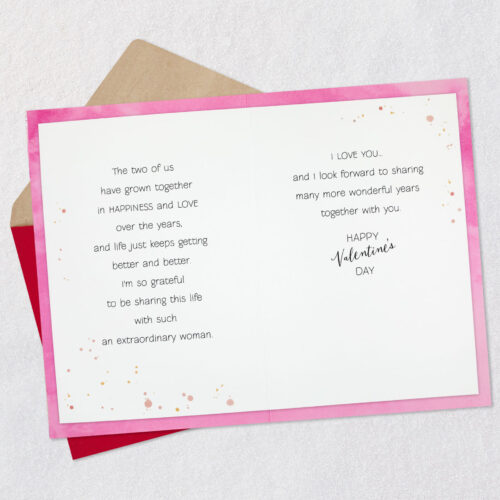 The two of us
have grown together
in HAPPINESS and LOVE
over the years,
and life just keeps getting
better and better.
I'm so grateful
to be sharing this life
with such
an extraordinary woman.
I LOVE YOU...
and I look forward to sharing
many more wonderful years
together with you.
HAPPY
Valentine's
DAY